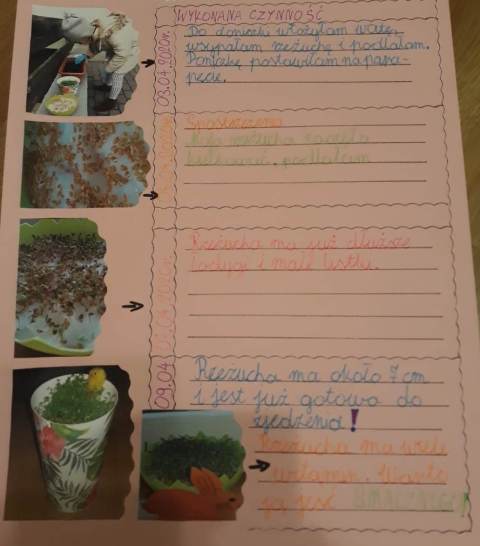 WYKONANA CZYNNOŚĆ
03.04.2020r.
Do doniczki włożyłam watę,
wsypałam rzeżuchę i podlałam.
Doniczkę postawiłam na para-
pecie.
Spostrzeżenia
Moja rzeżucha zaczęła
kiełkować. podlałam
Rzeżucha ma już dłuższe
łodygi i małe listki.
09.04
Rzezucha ma około 7 cm
i jest już gotowa do
zjedzenia!
Rzeżucha ma wiele
witamin. Warto
ją jeść SMACZNEGO